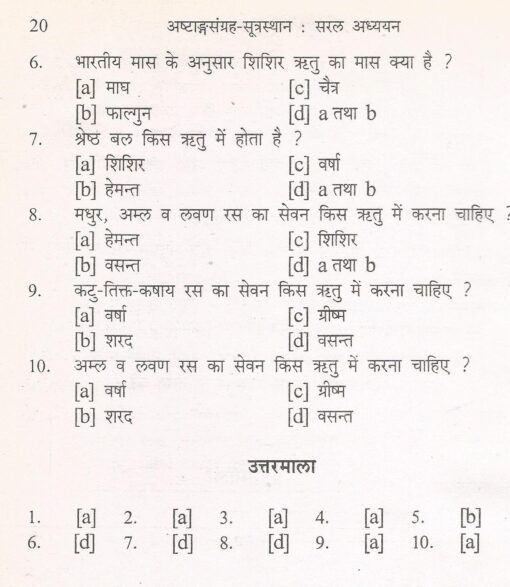 20 अष्टाङ्गसंग्रह-सूत्रस्थान : सरल अध्ययन
6. भारतीय मास के अनुसार शिशिर ऋतु का मास क्या है ?
[a] माघ [c] चैत्र
[b] फाल्गुन [d] a तथा b
7. श्रेष्ठ बल किस ऋतु में होता है ?
[a] शिशिर [c] वर्षा
[b] हेमन्त [d] a तथा b
8. मधुर, अम्ल व लवण रस का सेवन किस ऋतु में करना चाहिए ?
[a] हेमन्त [c] शिशिर
[b] वसन्त [d] a तथा b
9. कटु-तिक्त-कषाय रस का सेवन किस ऋतु में करना चाहिए ?
[a] वर्षा [c] ग्रीष्म
[b] शरद [d] वसन्त
10. अम्ल व लवण रस का सेवन किस ऋतु में करना चाहिए ?
[a] वर्षा [c] ग्रीष्म
[b] शरद [d] वसन्त
उत्तरमाला
1. [a] 2. [a] 3. [a] 4. [a] 5. [b]
6. [d] 7. [d] 8. [d] 9. [a] 10. [a]